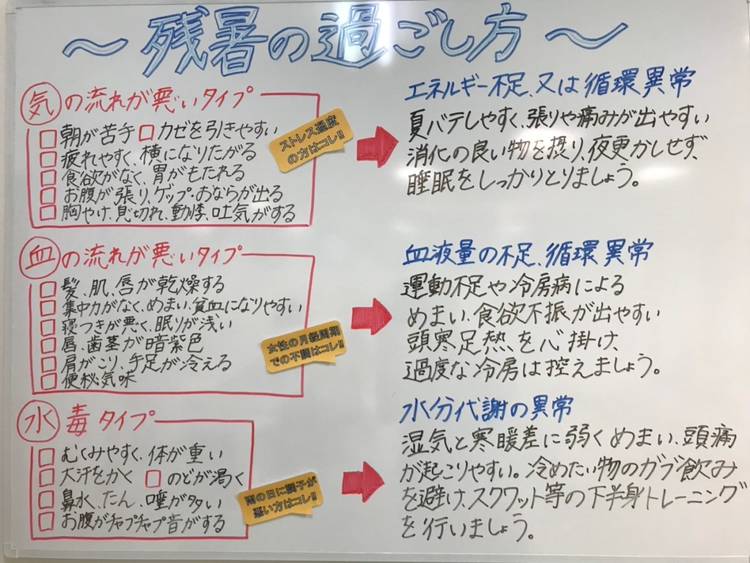 ～残暑の過ごし方～
気の流れが悪いタイプ
□朝が苦手 □カゼを引きやすい
□疲れやすく、横になりたがる
□食欲がなく、胃がもたれる
□お腹が張り、ゲップ・おならが出る
□胸やけ、息切れ、動悸、吐気がする
ストレス過度
の方はコレ!!
エネルギー不足、又は循環異常
夏バテしやすく、張りや痛みが出やすい
消化の良い物を摂り、夜更かしせず、
睡眠をしっかりとりましょう。
血の流れが悪いタイプ
□髪、肌、唇が乾燥する
□集中力がなく、めまい、貧血になりやすい
□寝つきが悪く、眠りが浅い
□唇、歯茎が暗紫色
□肩がこり、手足が冷える
□便秘気味
女性の月経周期
での不調はコレ!!
血液量の不足、循環異常
運動不足や冷房病による
めまい、食欲不振が出やすい
頭寒足熱、を心掛け、
過度な冷房は控えましょう。
水毒タイプ
□むくみやすく、体が重い
□大汗をかく □のどが渇く
□鼻水、たん、唾が多い
□お腹がチャプチャプ音がする
雨の日に調子が
悪い方はコレ!!
水分代謝の異常
湿気と寒暖差に弱くめまい、頭痛
が起こりやすい。冷めたい物のガブ飲み
を避け、スクワット等の下半身トレーニング
を行いましょう。